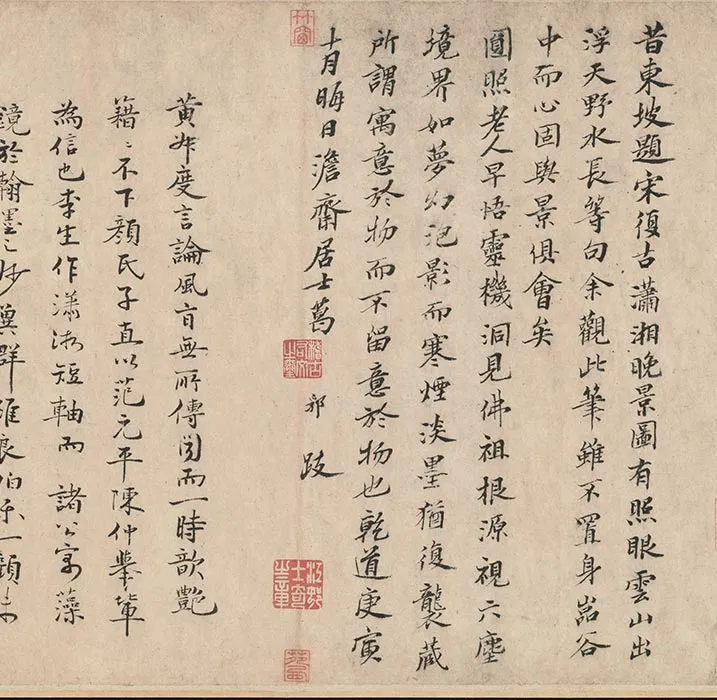 昔東坡題宋復古瀟湘晚景圖有照眼雲山出
浮天野水長等句余觀此筆雖不置身嵓谷
中而心固與景俱會矣
圓照老人早悟靈機洞見佛祖根源視六塵
境界如夢幻泡影而寒煙淡墨猶復襲藏
所謂寓意於物而不留意於物也乾道庚寅
十月晦日澹齋居士葛郯跋
黃叔度言論風旨無所傳聞而一時歆豔
籍〻不下顏氏子直以范元平陳仲舉輩
為信也李生作瀟湘短軸而諸公寄藻
鏡於翰墨之妙冀群雖良伯樂一顧